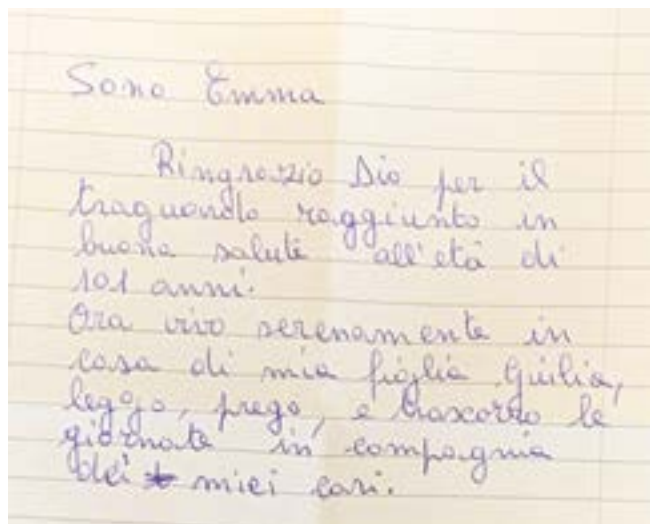 Sono Emma
Ringrazio Dio per il
traguardo raggiunto in
buona salute all'età di
101 anni.
Ora vivo serenamente in
casa di mia figlia Giulia,
leggo, prego, e trascorro le
giornate in compagnia
dei miei cari.